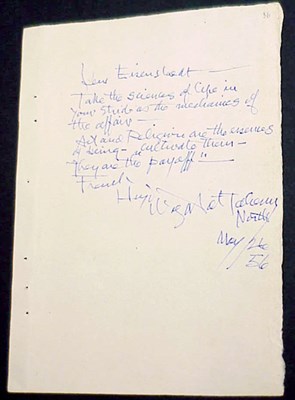 Dear Eisenstaedt —
Take the sciences of life in
your stride as the mechanics of
the affair —
Art and Religion are the essences
of being — cultivate them —
They are the payoff!!
Frank
Wright
Taliesin
North
May/26
56